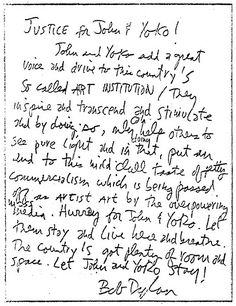 JUSTICE for John & Yoko!
John and Yoko add a great
voice and drive to this country's
So called ART INSTITUTION / They
inspire and transcend and stimulate
and by doing so, only help others to
see pure light and in doing that, put an
end to this mild dull taste of petty
commercialism which is being passed
off as ARTIST ART by the overpowering
mass media. Hurray for John & Yoko. Let
them stay and live here and breathe.
The country's got plenty of room and
space. Let John and Yoko Stay!
Bob Dylan